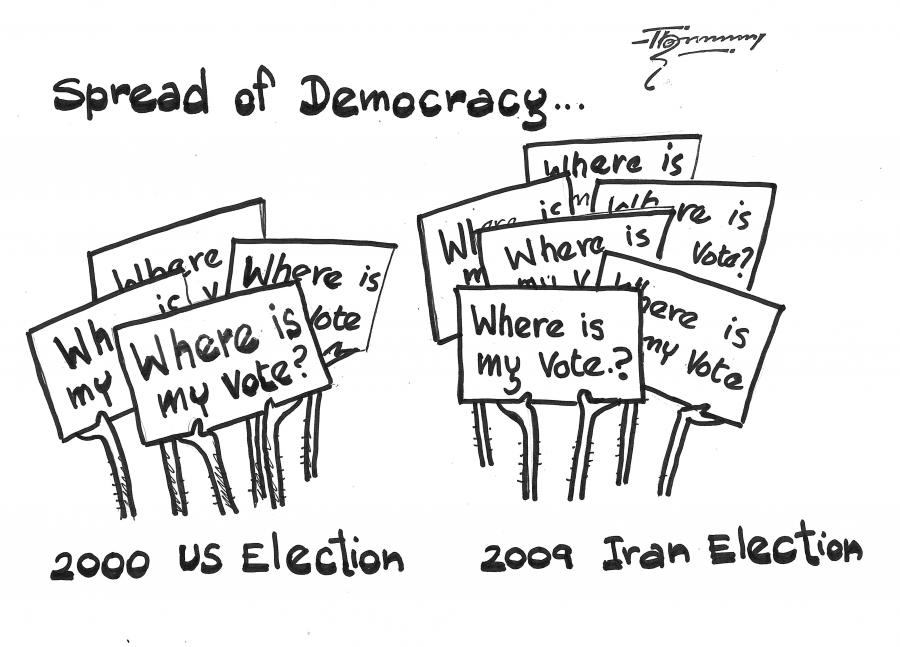 Spread of Democracy...
Where
is
Where is
Vote
Wh
my
Where is
my Vote?
Where is
Where is
Vote?
Where is
my
Where is
my Vote
Where is
my Vote.?
2000 US Election
2009 Iran Election